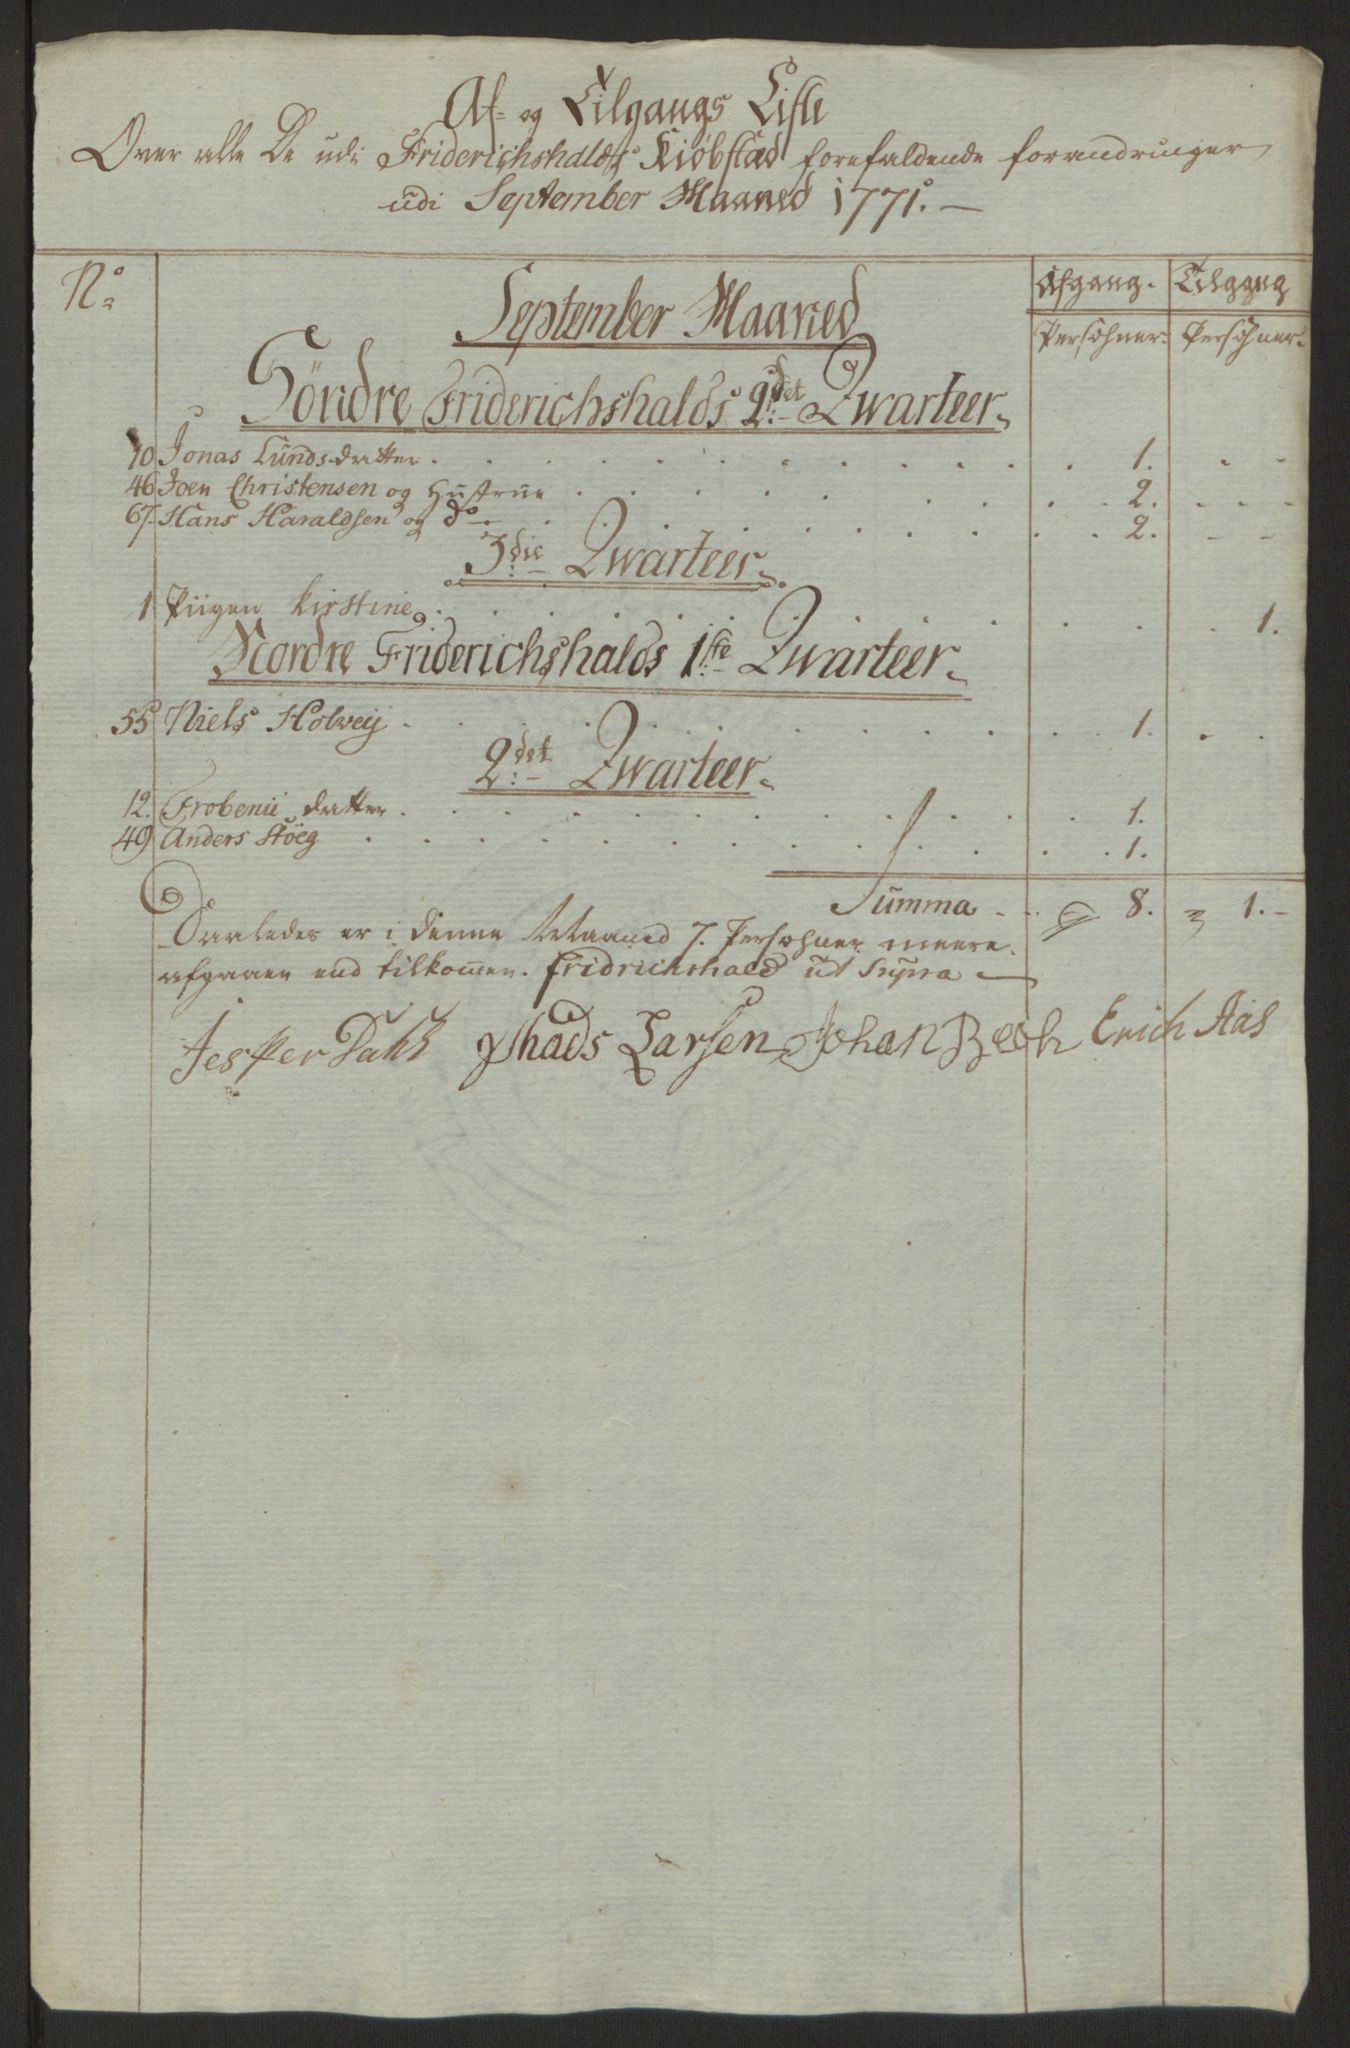 Af- og Tilgangs Liste
Over alle De udi Friderichshalds Kiöbstæd forefaldende forandringer
udi September Maaned 1771. —
No September Maaned Afgang. Tilgang
Persohner. Persohner.
Söndre Friderichshalds 2det Qwarteer.
10 Jonas Lunds datter . . . 1. - -
46 Joen Christensen og Hustrue . . . 2. - - -
67 Hans Haraldsen og do . . . 2. - -
3die Qwarteer.
1 Piigen Kirstine . . . 1.
Nordre Friderichshalds 1ste Qwarteer.
55 Niels Holveij . . . 1. - -
2det Qwarteer.
12. Frobenii datter . . . 1.
49 Anders Stöeg . . . 1.
Summa - . . 8. 1. -
Saaledes er i denne Maaned 7. Persohner meere
afgaaen end tilkommen. Fridrichshald ut Supra —
Jesper Dahl Mads Larsen Johan Erich Aas